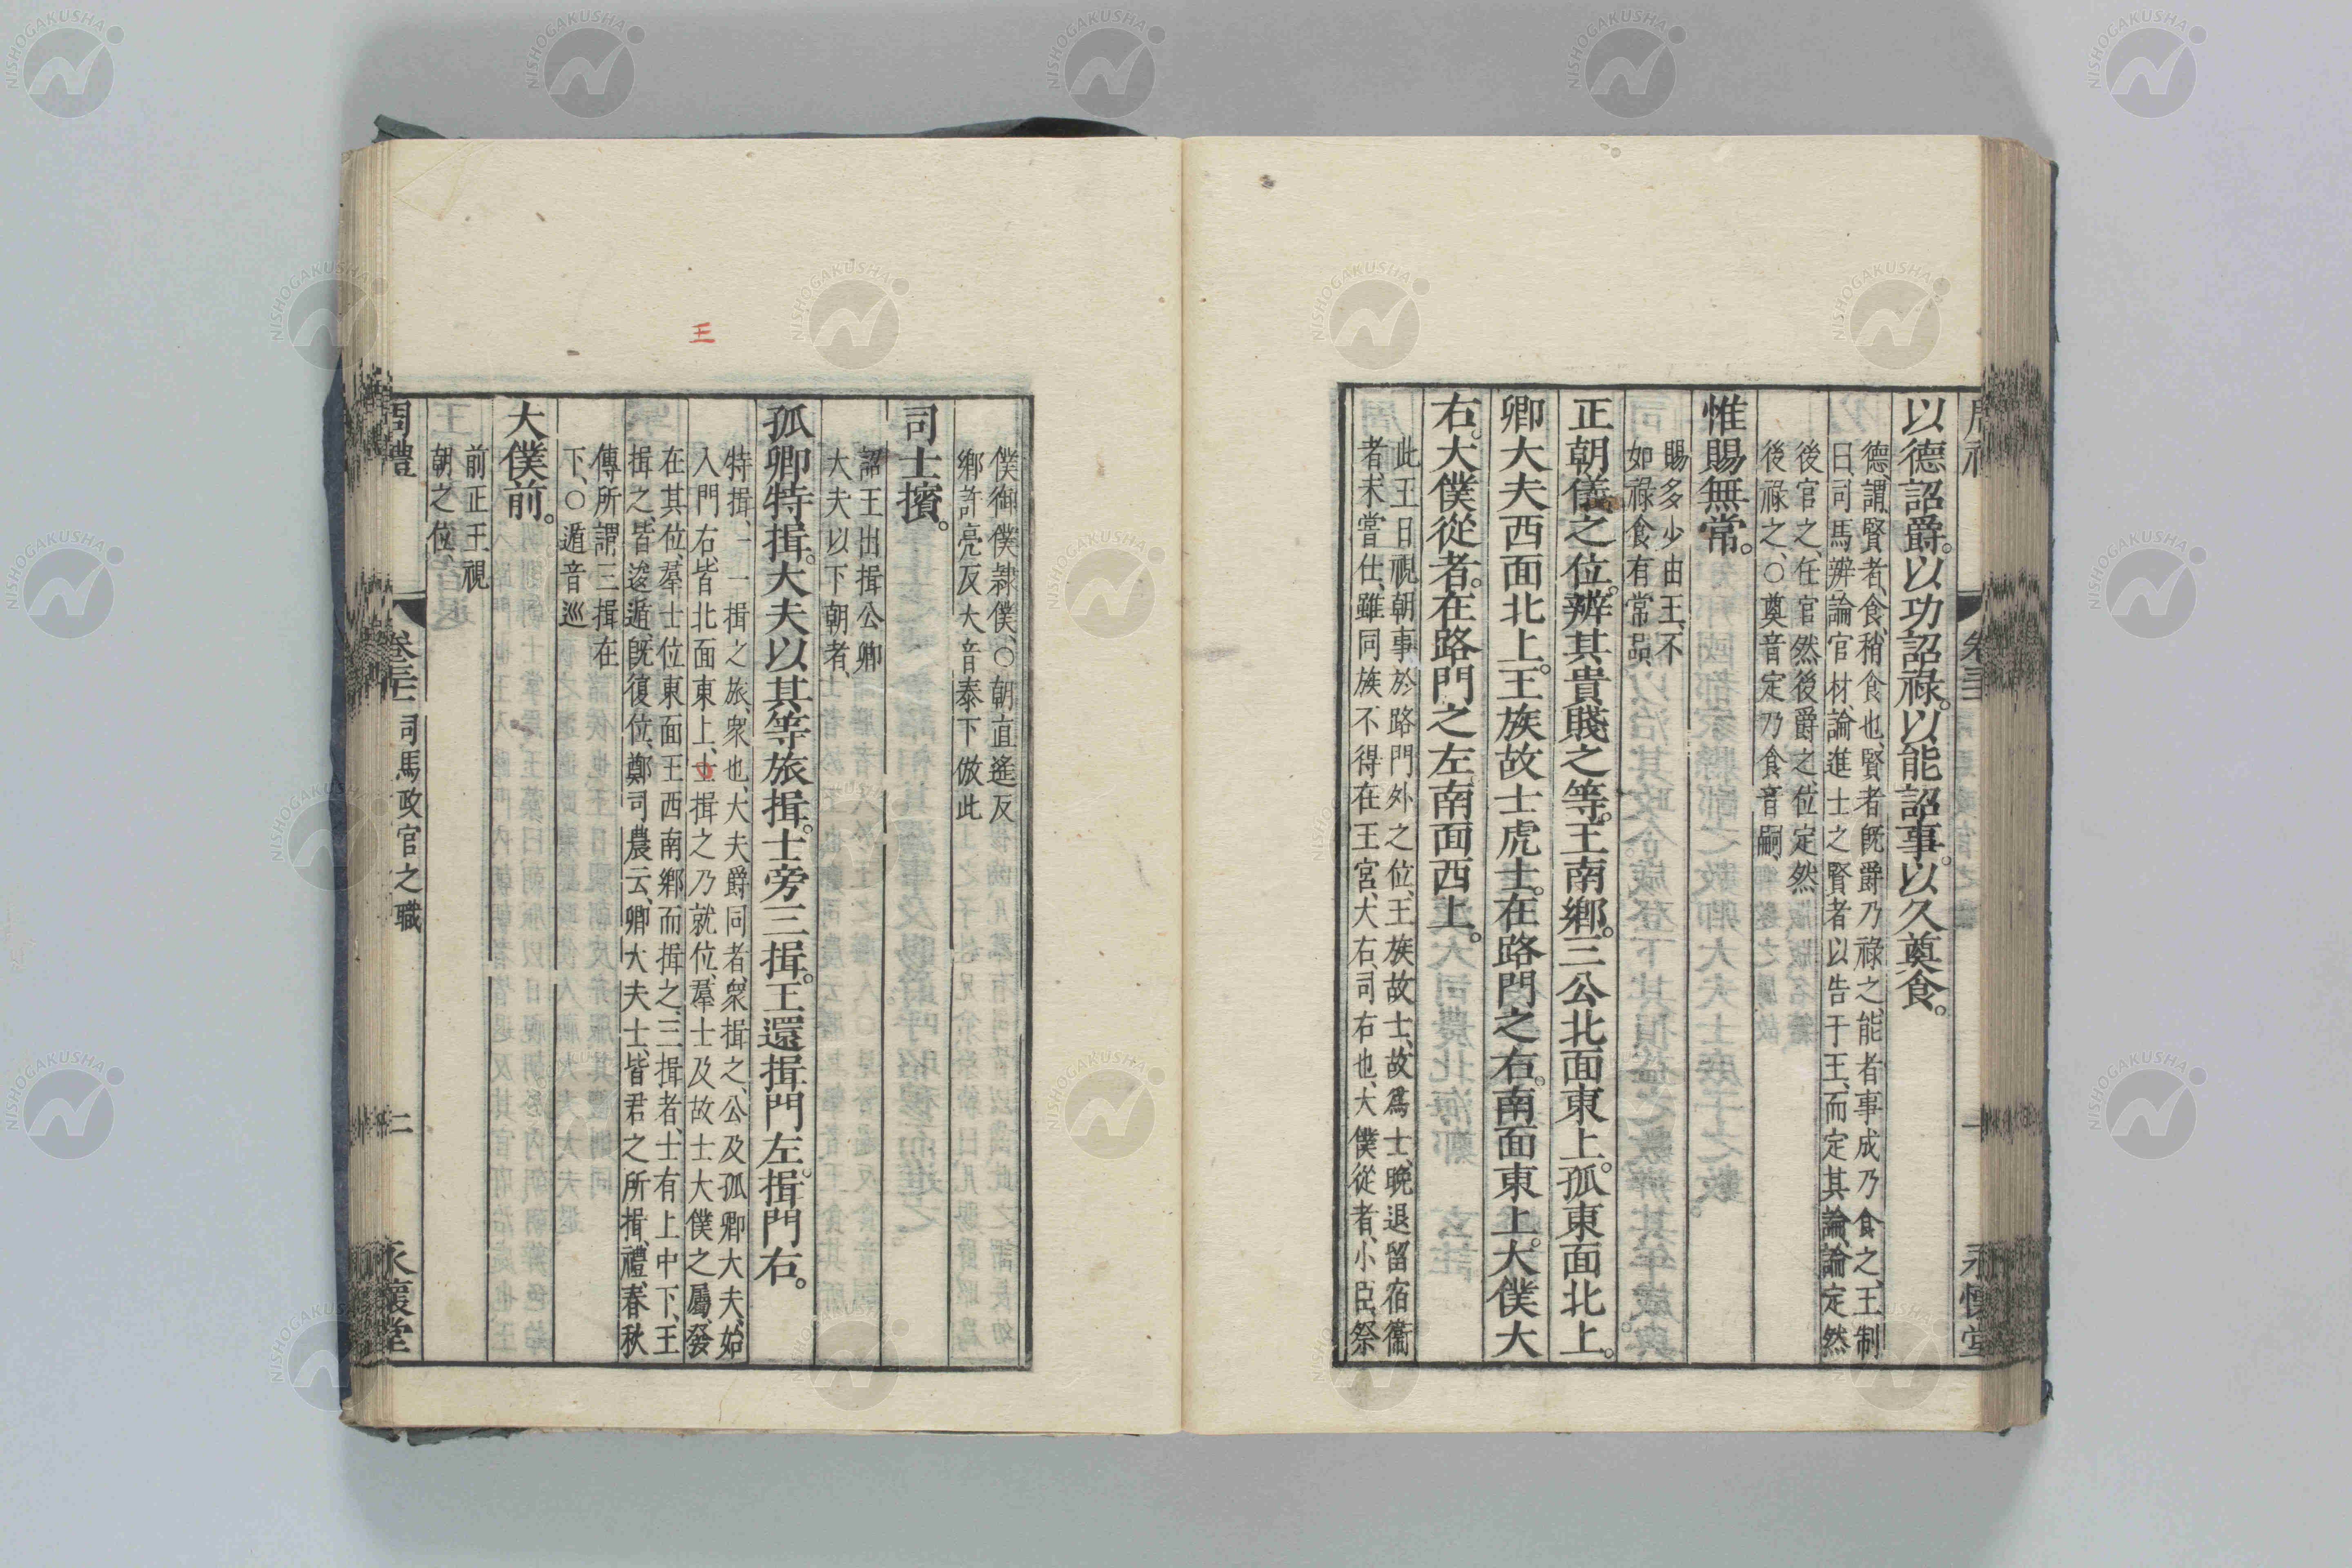 以德詔爵。以功詔祿。以能詔事。以久奠食。
德、謂賢者、食、稍食也、賢者既爵乃祿之、能者事成乃食之、王制
曰、司馬辨論官材、論進士之賢者以告于王、而定其論、論定然
後官之、任官然後爵之、位定然
後祿之、○奠音定乃食音嗣、
惟賜無常。
賜多少由王、不
如祿食有常品
正朝儀之位。辨其貴賤之等。王南鄉。三公北面東上。孤東面北上。
卿大夫西面北上。王族故士虎士。在路門之右。南面東上。大僕大
右。大僕從者。在路門之左南面西上。
此王日視朝事於路門外之位、王族故士、故爲士、晚退留宿衞
者、未嘗仕、雖同族不得在王宮、大右、司右也、大僕從者、小臣、祭
僕御僕隸僕、○朝直遙反
鄉許亮反大音泰下倣此
司士擯。
詔王出揖公卿
大夫以下朝者、
孤卿特揖。大夫以其等旅揖。士旁三揖。王還揖門左。揖門右。
特揖、一一揖之旅、衆也、大夫爵同者、衆揖之、公及孤卿大夫、始
入門右、皆北面東上、王揖之乃就位、羣士及故士大僕之屬、發
在其位、羣士位東面王西南鄉而揖之、三揖者、士有上中下、王
揖之、皆逡遁、既復位、鄭司農云、卿大夫士、皆君之所揖、禮、春秋
傳所謂三揖在
下、○遁音巡
大僕前。
前正王視
朝之位、
周禮 卷三十一 司馬政官之職 二 永懷堂
王